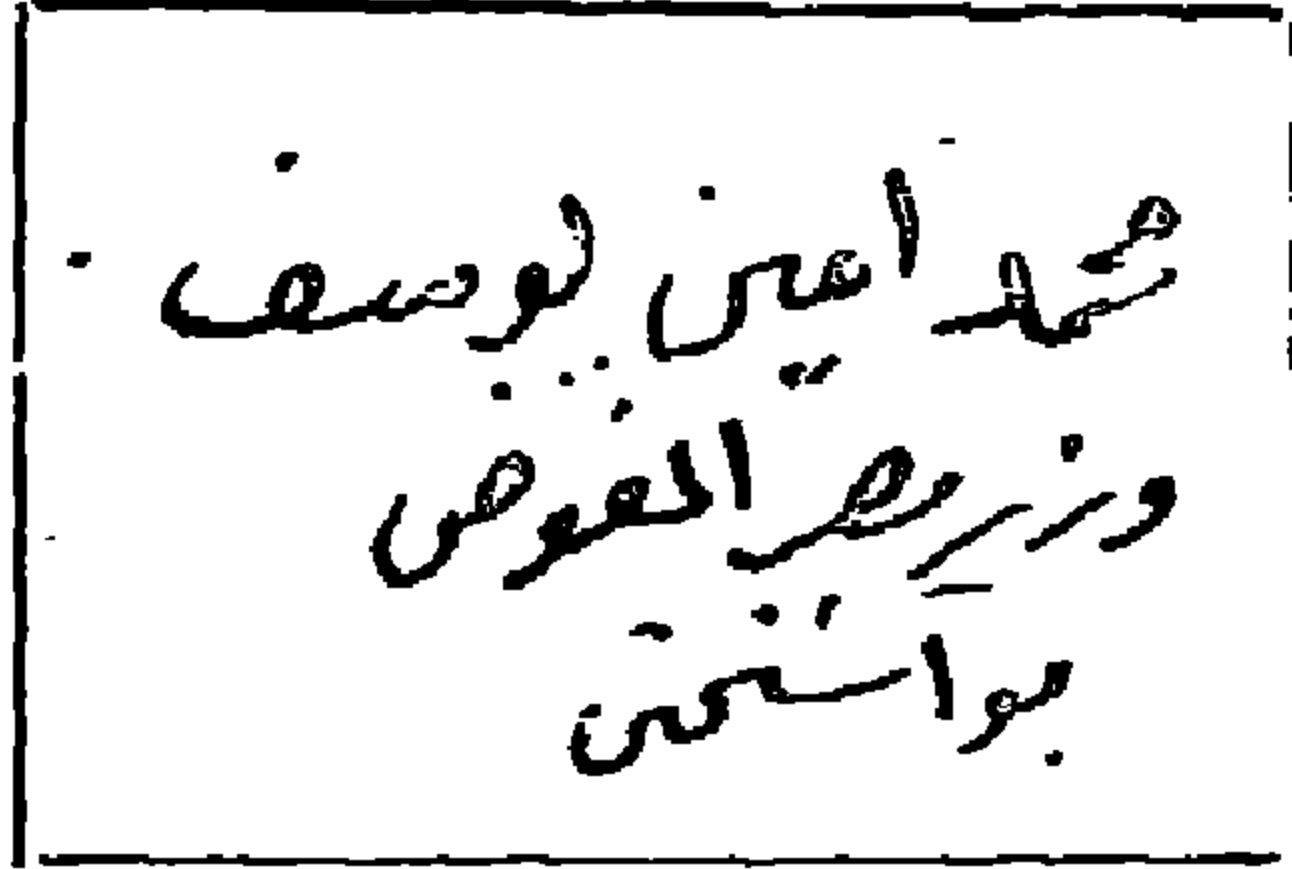 محمد امين يوسف
وزير مصر المفوض
بواشنجتن